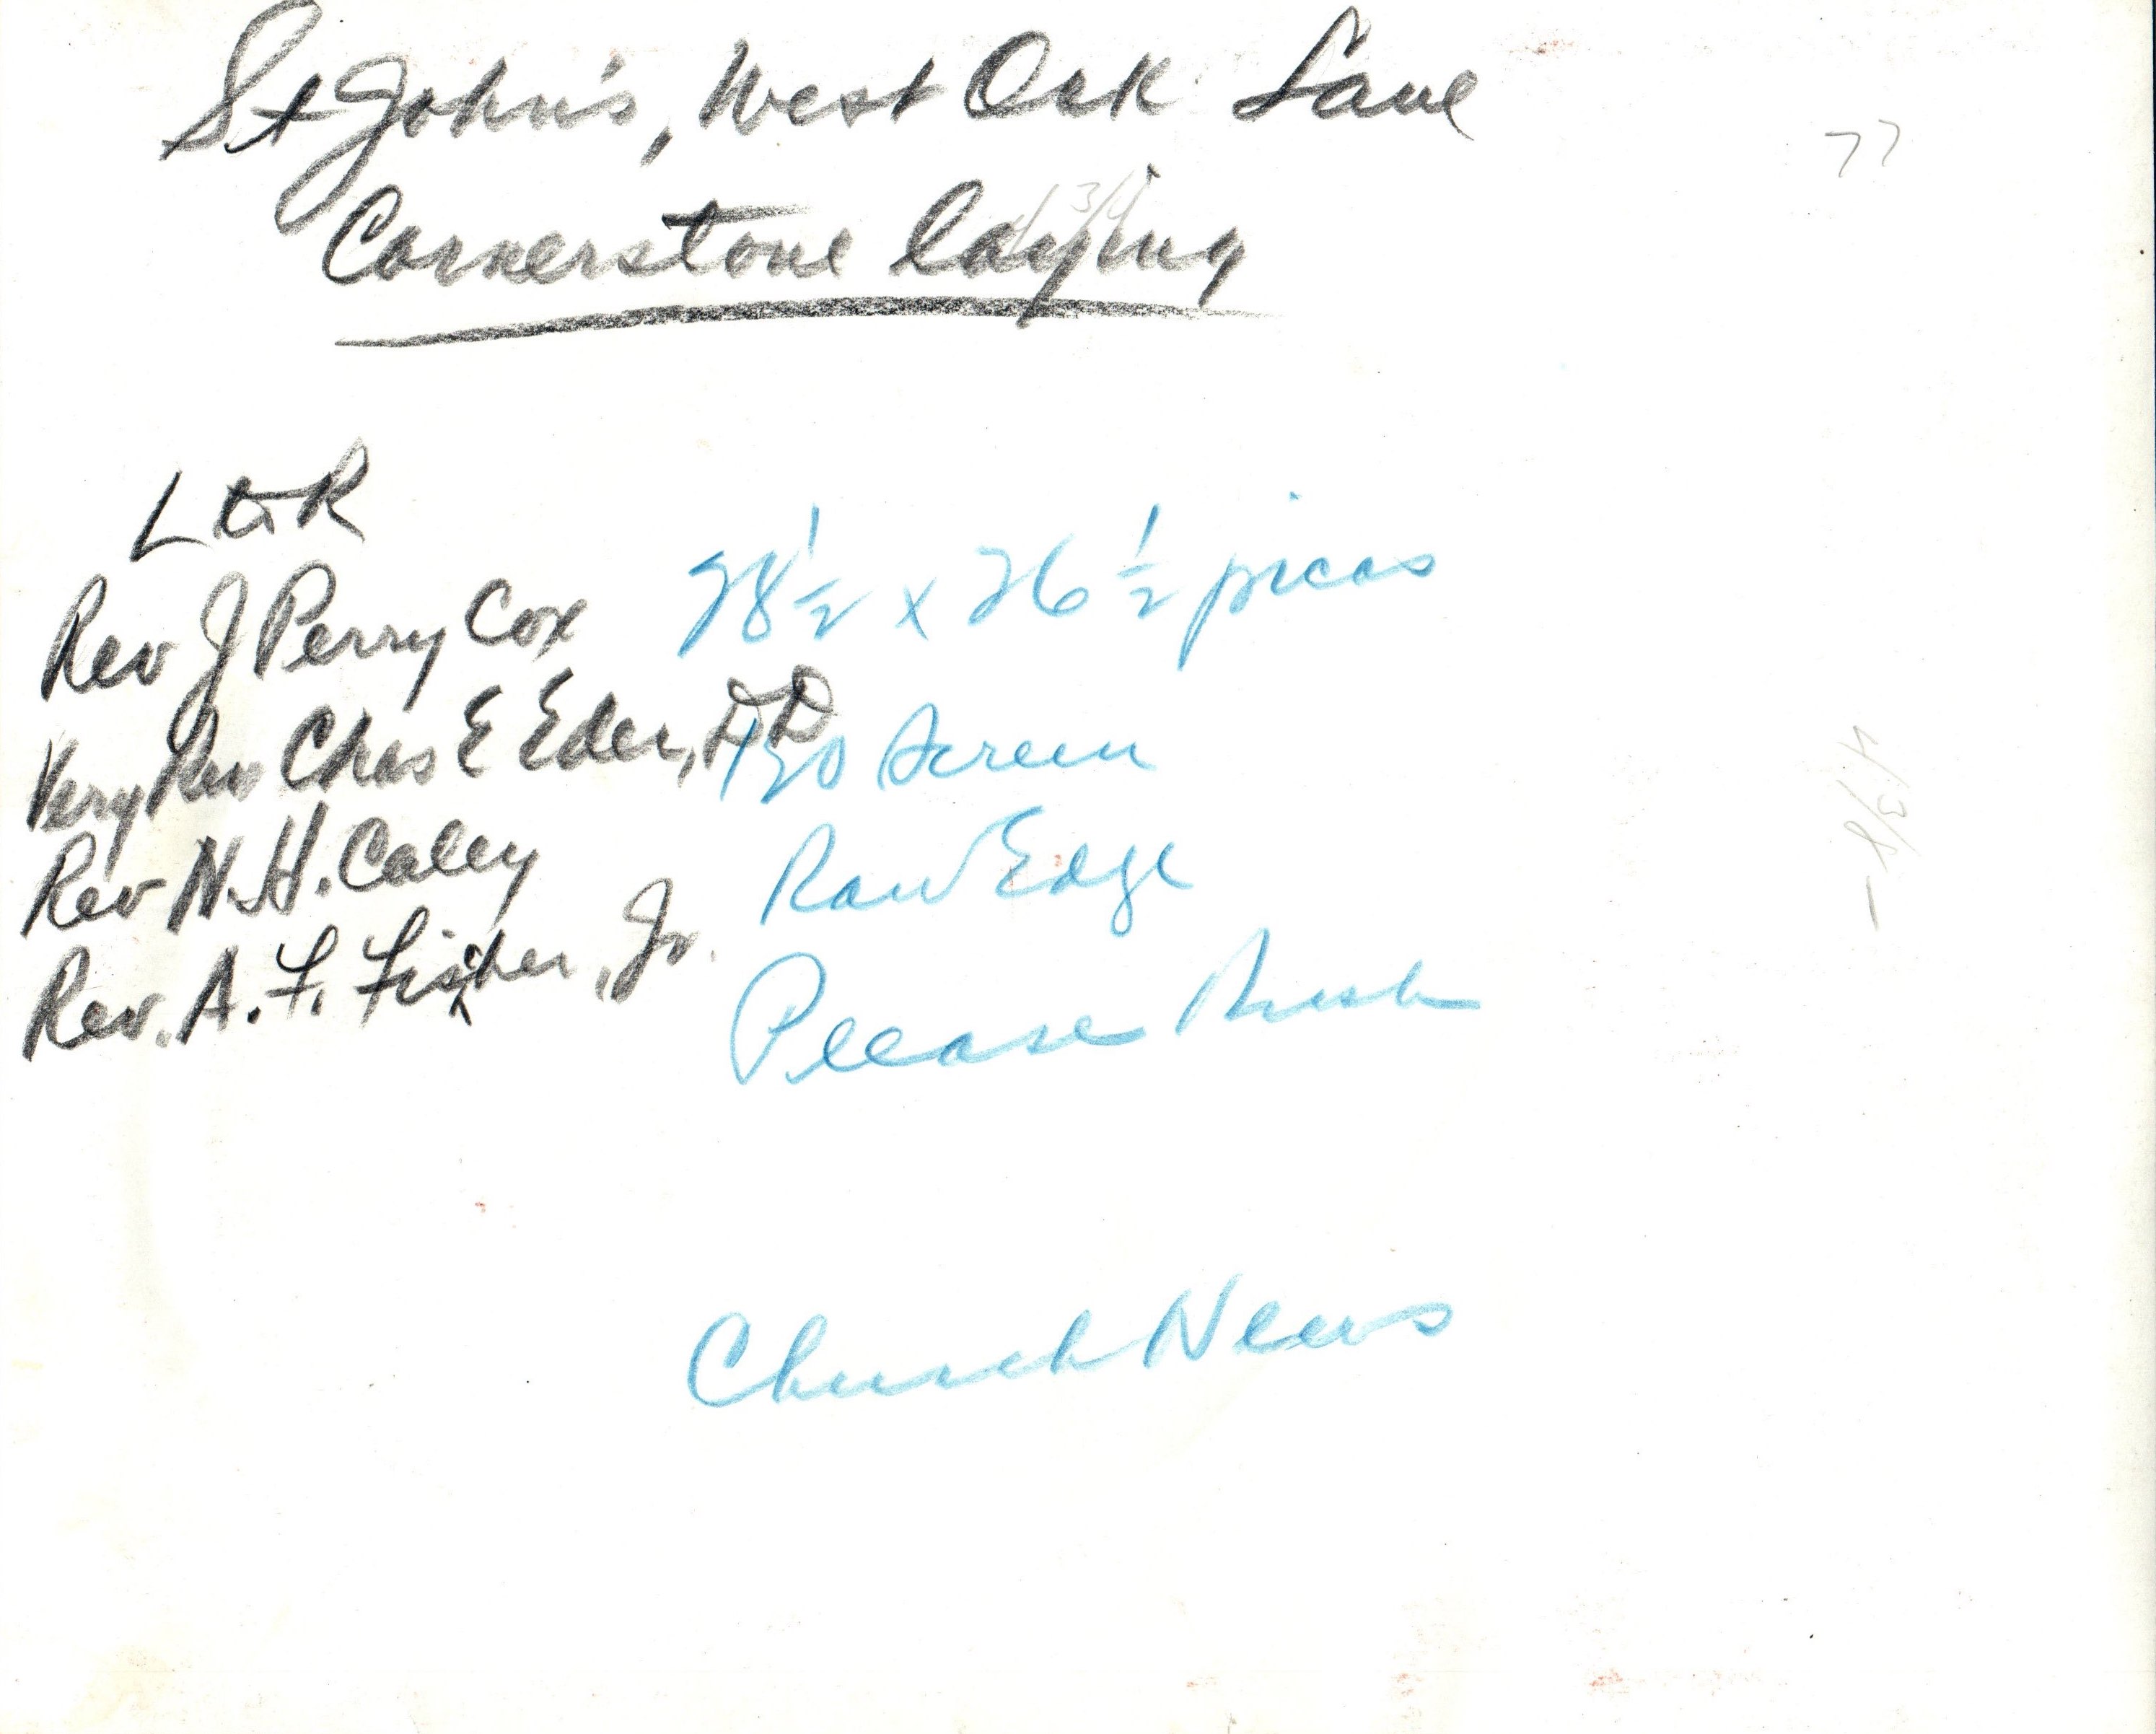 St John's, West Oak Lane
Cornerstone laying
77
L to R
Rev J Perry Cox
Very Rev Chas E Eder, DD
Rev N. H. Caley
Rev. A. F. Fisher, Jr.
28 1/2 x 26 1/2 picas
120 Screen
Raw Edge
Please Rush
4 3/8
Church News